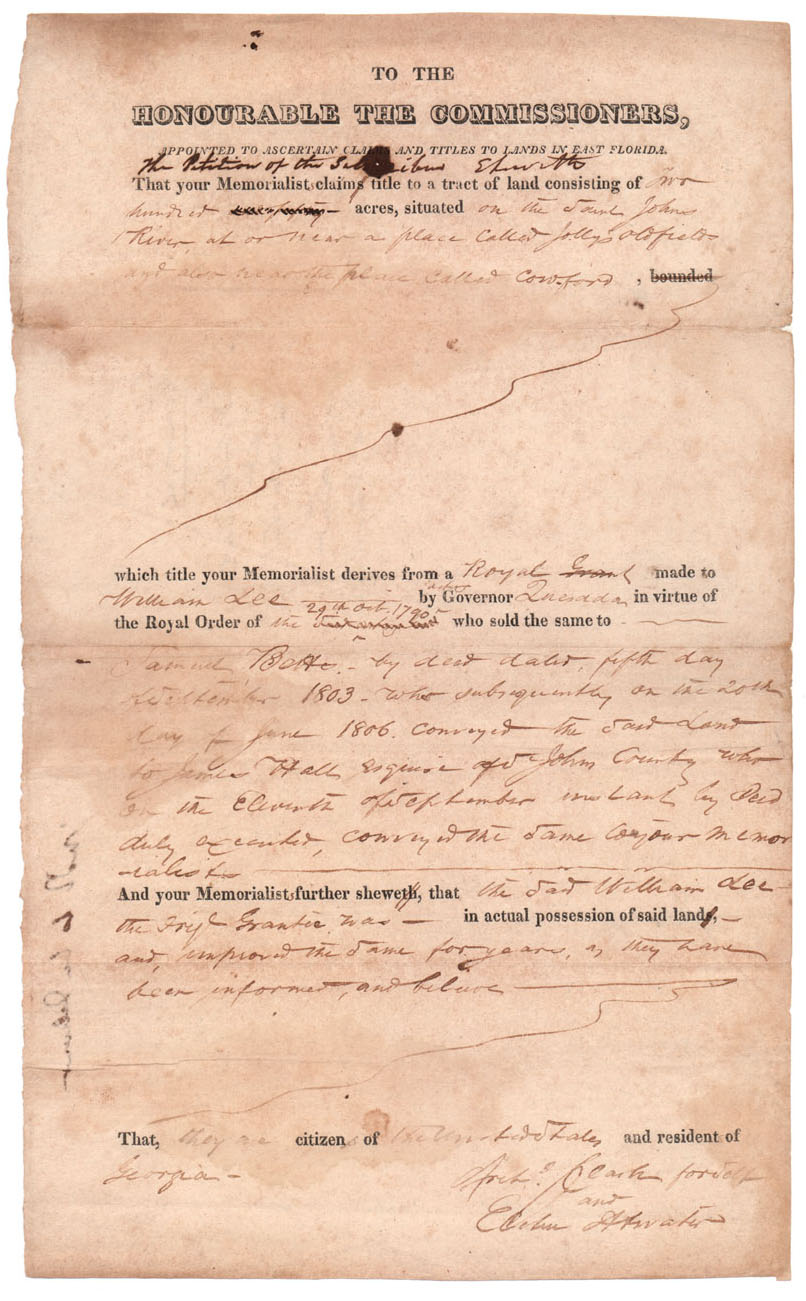 TO THE
HONOURABLE THE COMMISSIONERS,
APPOINTED TO ASCERTAIN CLAIMS AND TITLES TO LANDS IN EAST FLORIDA.
The Petition of the Subscribers Sheweth
That your Memorialists claim title to a tract of land consisting of Two
hundred acres, situated on the Saint Johns
River, at or near a place called Jollys oldfields
and also near the place called Cowford, bounded
which title your Memorialist derives from a Royal Grant made to
William Lee by Governor Quesada in virtue of
the Royal Order of the 29th Oct. 1790 who sold the same to
Samuel Betts. by deed dated, fifth day
of September 1803 - who subsequently on the 20th
day of June 1806. conveyed the said Land
to James Hall Esquire of St Johns County who
on the Eleventh of September instant by Deed
duly executed, conveyed the same to your memor
-ialists
And your Memorialists further sheweth, that the said William Lee
the Grantee was - in actual possession of said lands, -
and, improved the same for years, as they have
been informed, and believe
That, they are citizens of the United States and resident of
Georgia -
Archd. Clark for self
and
Elihu Atwater